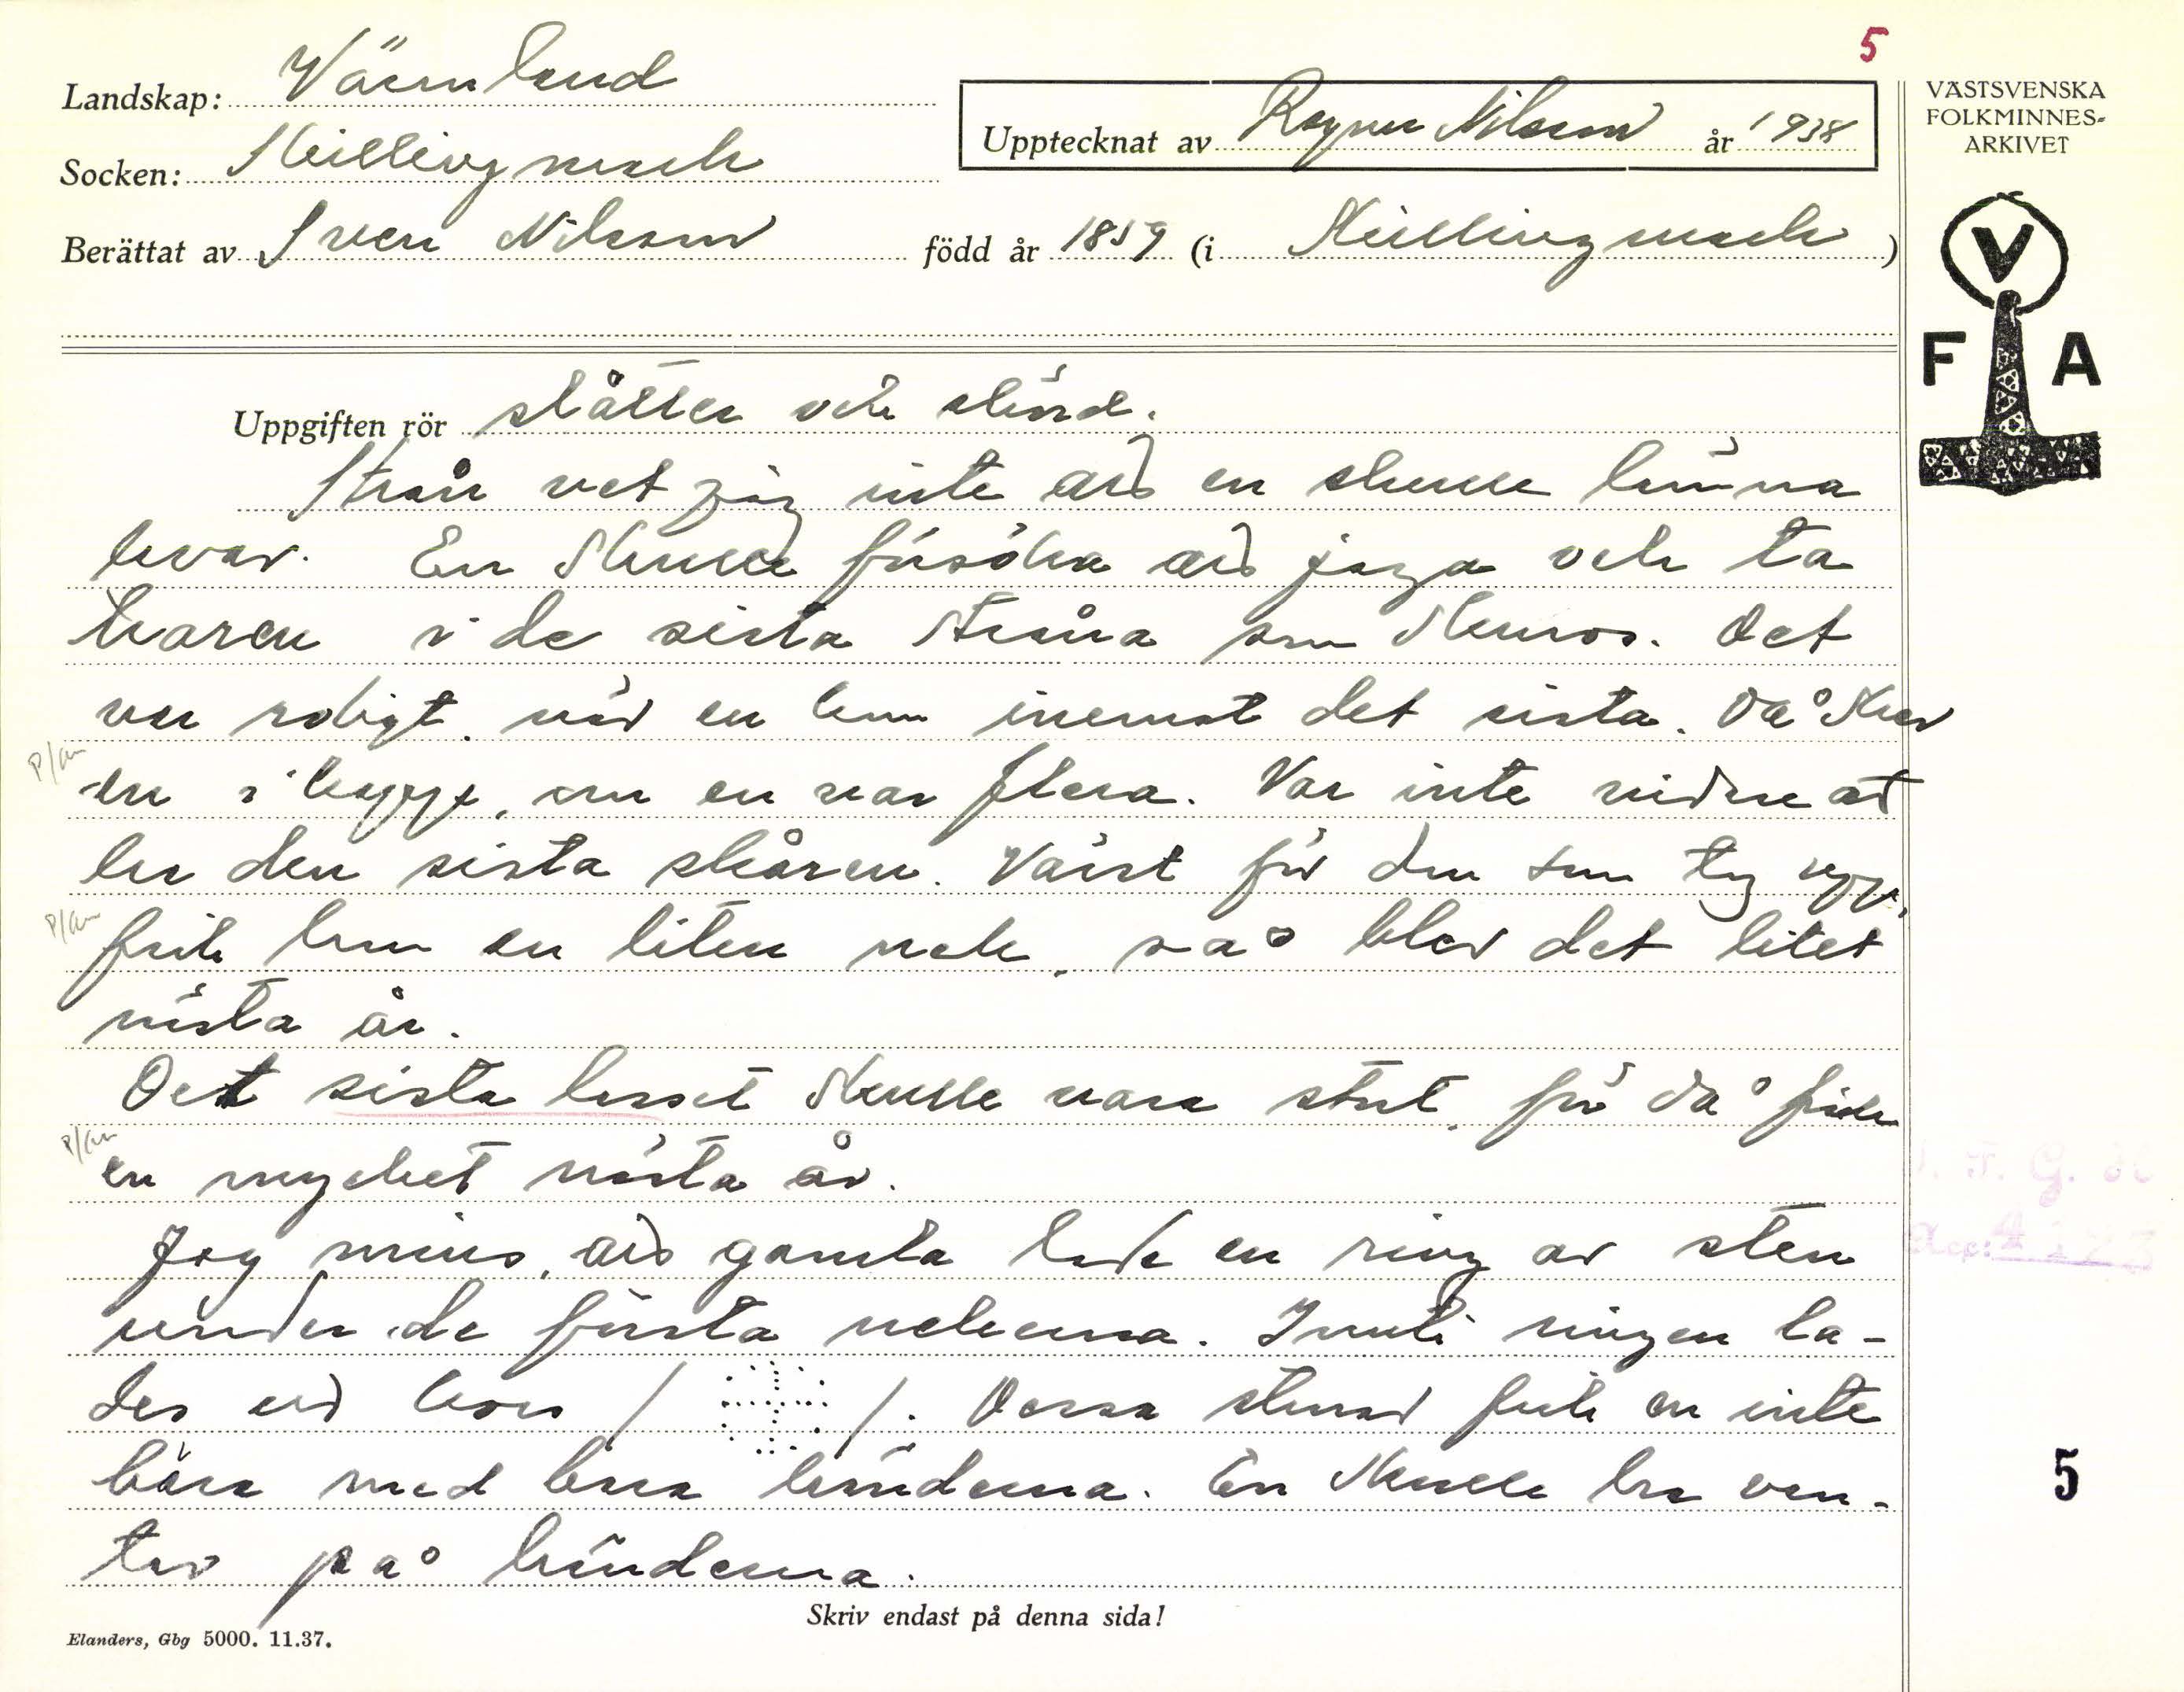 5
Landskap: Värmland
Upptecknat av Ragnar Nilsson år 1938
VÄSTSVENSKA
FOLKMINNES-
ARKIVET
Socken: Skillingmark
Berättat av Sven Nilsson född år 1859 (i Skillingmark)
V
F A
Uppgiften rör slåtter och skörd.
Strån vet jag inte att en skulle lämna
kvar. En skulle försöka att jaga och ta
haren i de sista stråna som skuros. Det
var roligt, när en kom inemot det sista. Då skar
en i kapp, om en var flera. Var inte vidare at
bli den sista skåren. Värst för den som tog upp,
fick han en liten nek, så blev det litet
nästa år.
Det sista lasset skulle vara stort, för då fick
en mycket nästa år.
Jag minns, att gamla lade en ring av sten
under de första nekerna. Inuti ringen la-
des ett kors / /. Dessa stenar fick en inte
bära med bara händerna. En skulle ha van-
tar på händerna.
5
Skriv endast på denna sida!
Elanders, Gbg 5000. 11.37.